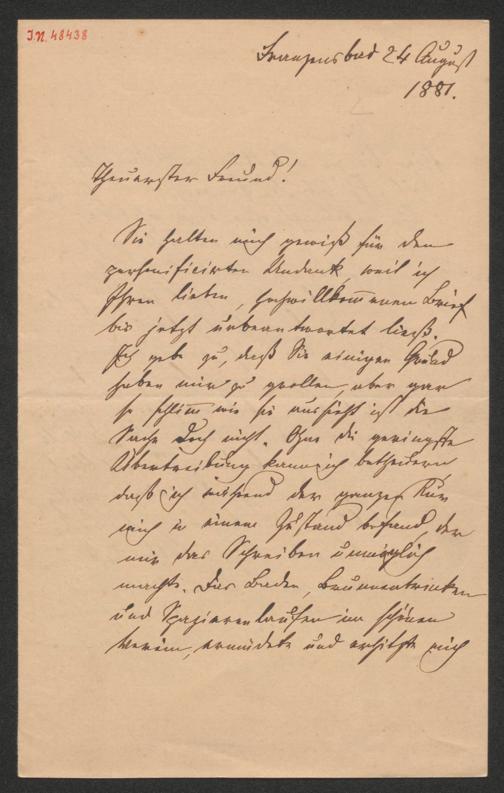 I.N. 48438
Franzensbad 24 August
1881.
Theuerster Freund!
Sie halten mich gewiß für den
personificirten Undank, weil ich
Ihren lieben, hochwillkommenen Brief
bis jetzt unbeantwortet ließ.
Ich gebe zu, daß Sie einigen Grund
haben mir zu grollen, aber gar
so schlimm wie sie aussieht ist die
Sache doch nicht. Ohne die geringste
Übertreibung kann ich betheuern,
daß ich während der ganzen Kur
mich in einem Zustand befand, der
mir das Schreiben unmöglich
machte. Das Baden, Brunnentrinken
und Spazierenlaufen im schönen
Verein, ermüdete und erhitzte mich